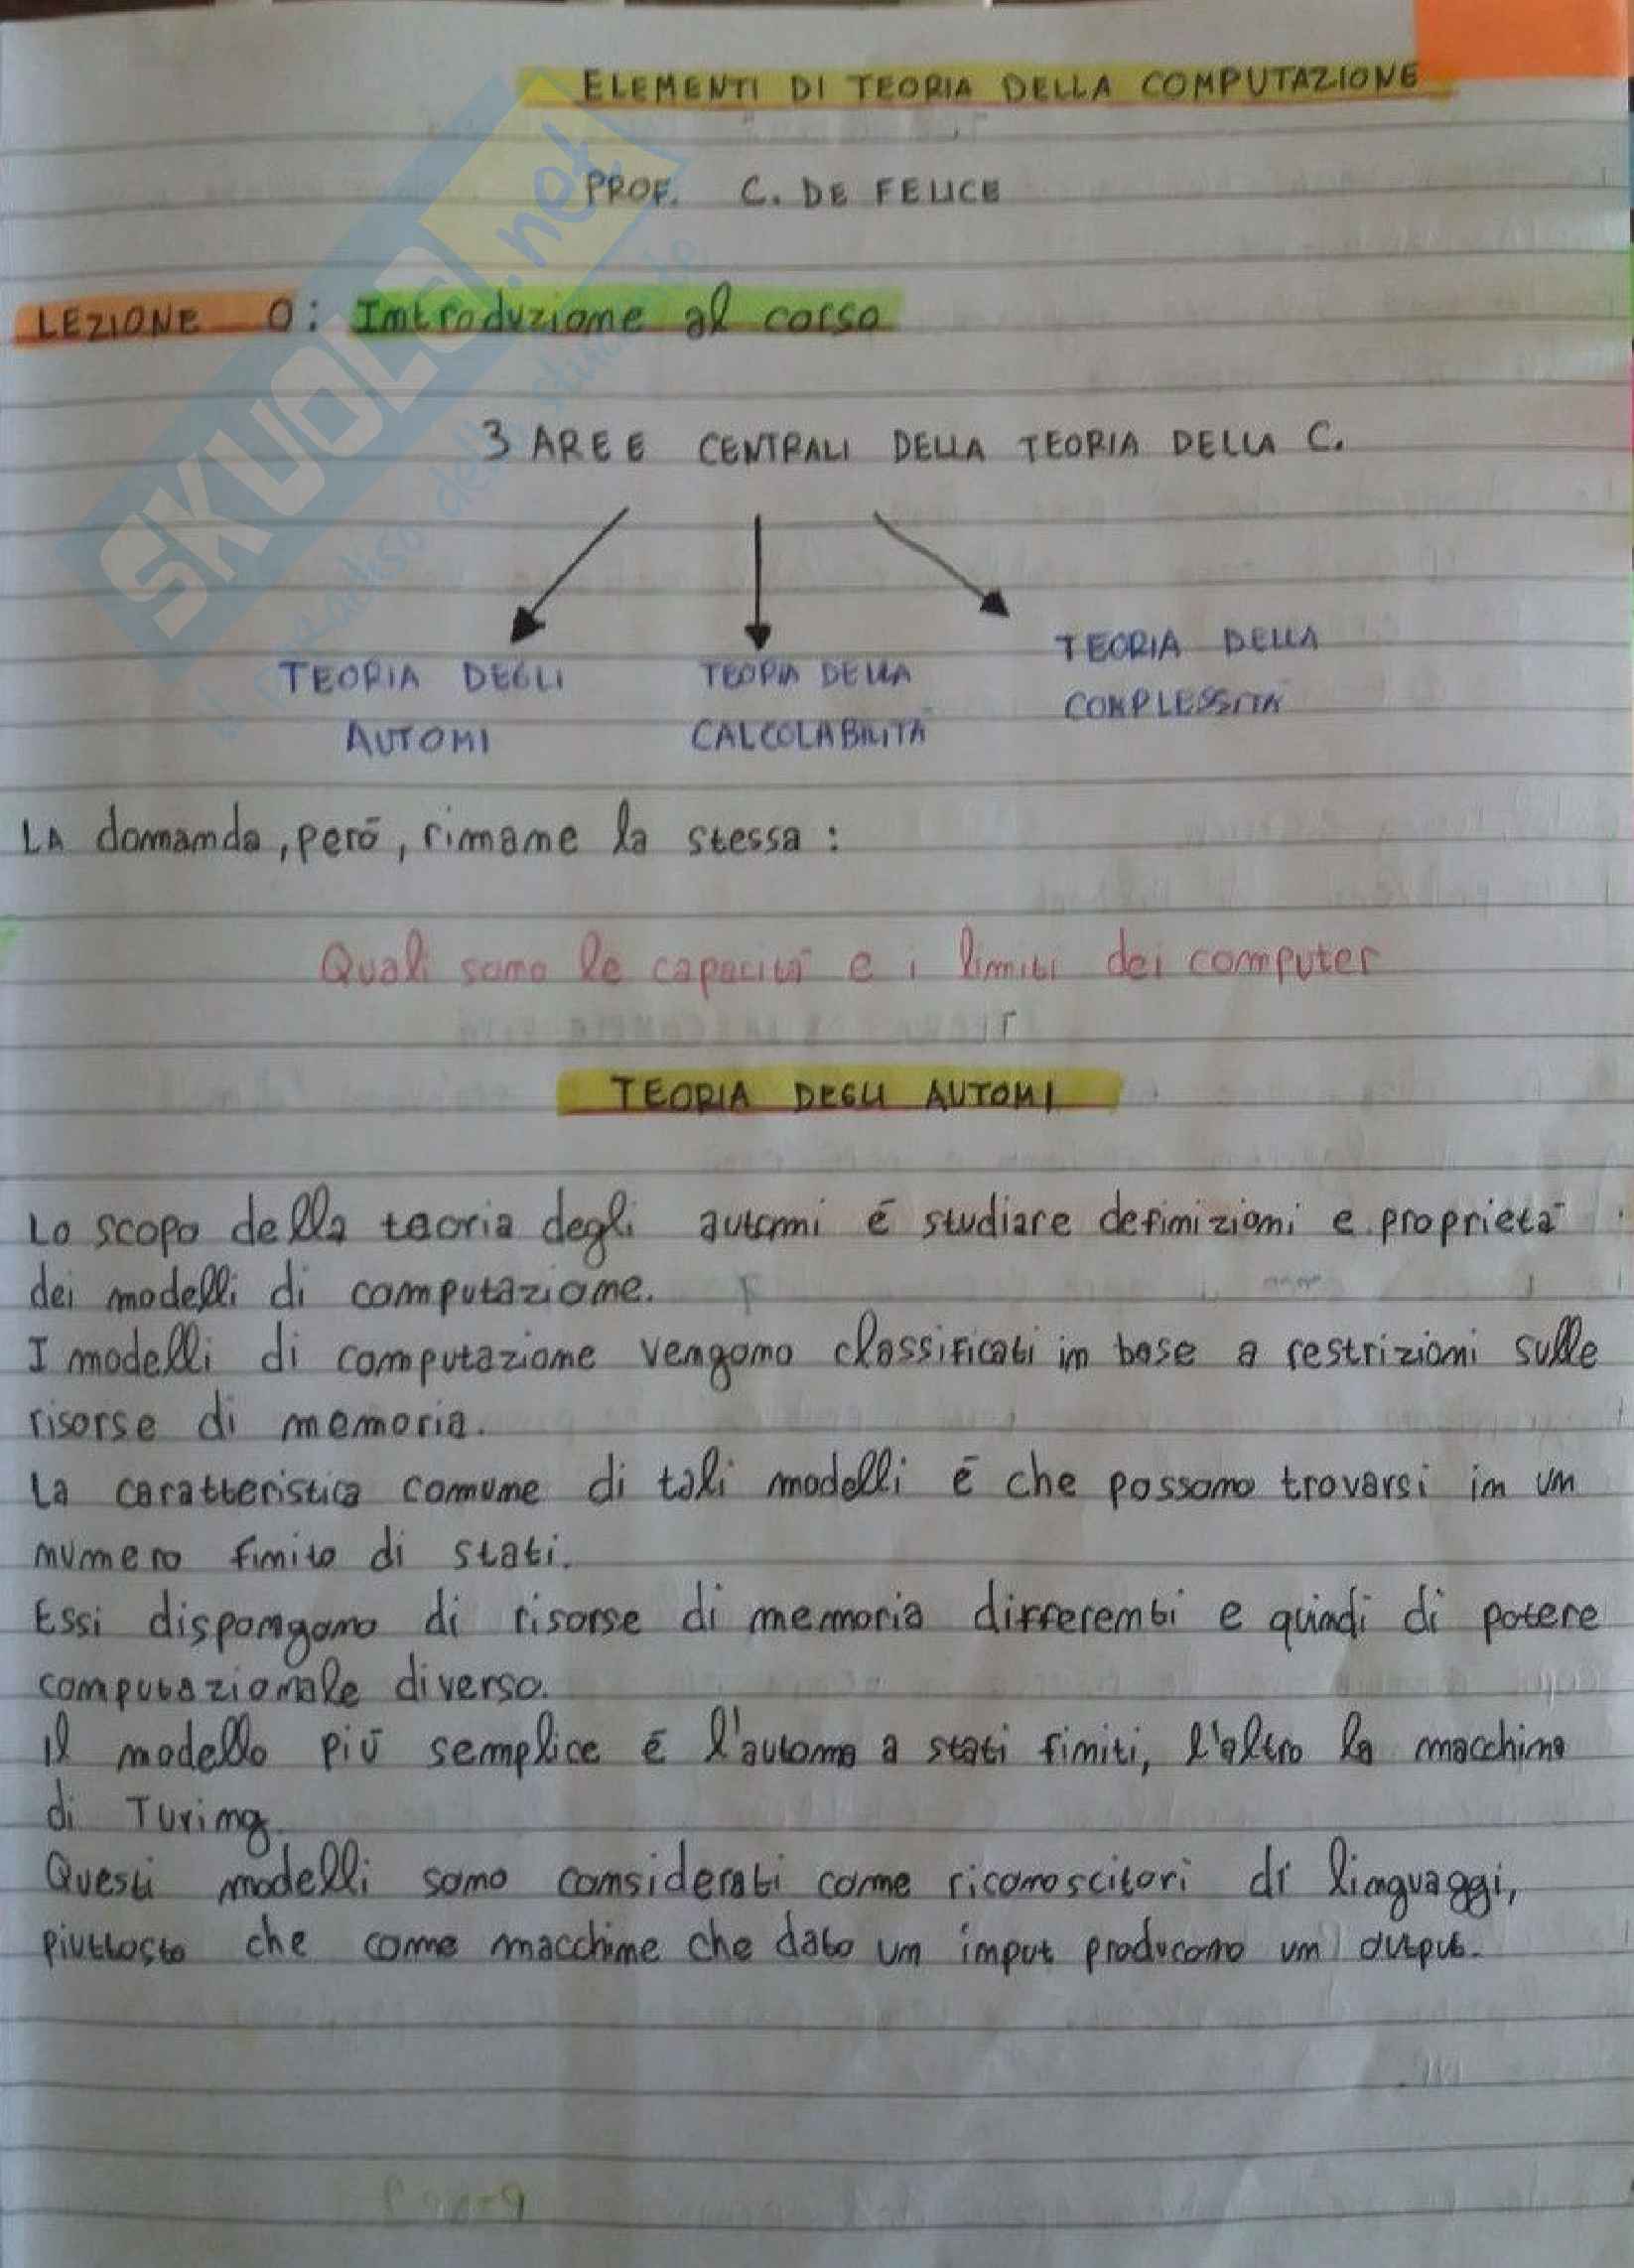 ELEMENTI DI TEORIA DELLA COMPUTAZIONE
PROF. C. DE FELICE
LEZIONE 0: Introduzione al corso
3 AREE CENTRALI DELLA TEORIA DELLA C.
TEORIA DEGLI AUTOMI
TEORIA DELLA CALCOLABILITÀ
TEORIA DELLA COMPLESSITÀ
LA domanda, però, rimane la stessa:
Quali sono le capacità e i limiti dei computer
TEORIA DEGLI AUTOMI
Lo scopo della teoria degli automi è studiare definizioni e proprietà
dei modelli di computazione.
I modelli di computazione vengono classificati in base a restrizioni sulle
risorse di memoria.
La caratteristica comune di tali modelli è che possono trovarsi in un
numero finito di stati.
Essi dispongono di risorse di memoria differenti e quindi di potere
computazionale diverso.
Il modello più semplice è l'automa a stati finiti, l'altro la macchina
di Turing.
Questi modelli sono considerati come riconoscitori di linguaggi,
piuttosto che come macchine che dato un input producono un output.
SKUOLA.net
il paradiso dello studente